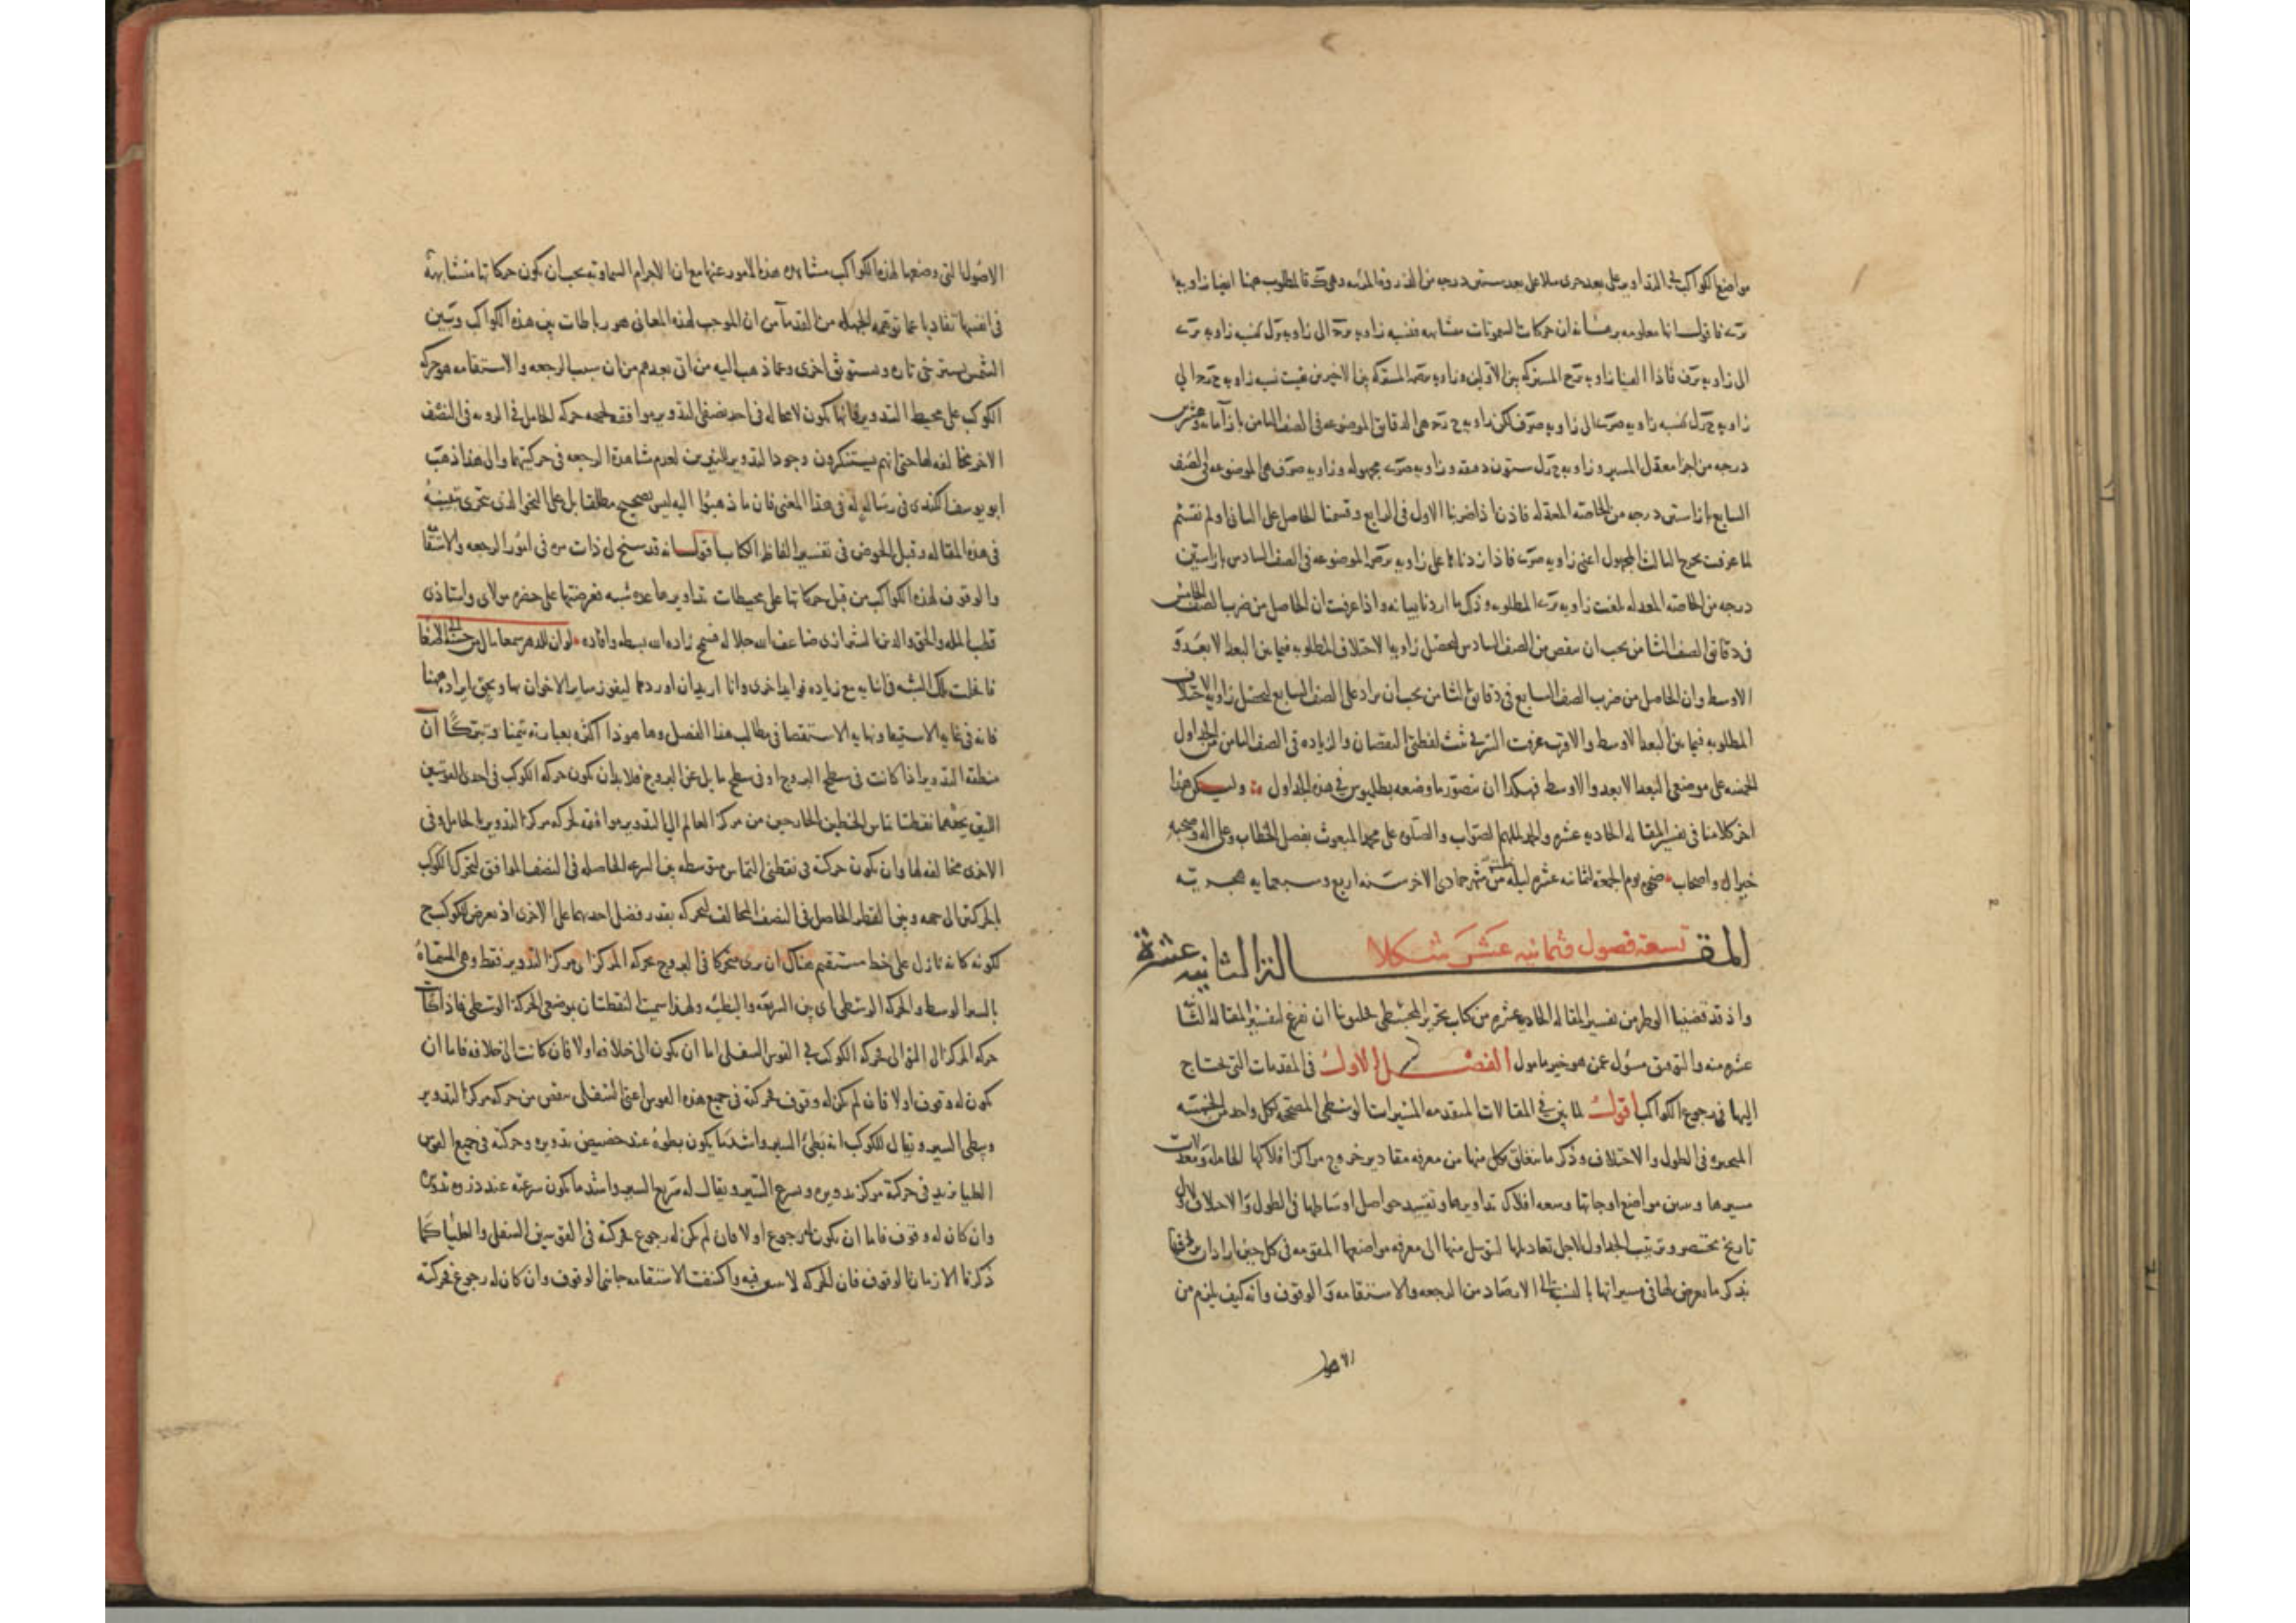 مواضع الكواكب في التداوير على بعد جزء مثلا على بعد ستين درجه من الذروة المرئيه وهي كـ فالمطلوب هنا ايضا زاويه
فاقول انها معلومه برهانه ان حركات السموات متشابهه فنسبه زاويه الى زاويه كنسبه زاويه
الى زاويه فاذا القينا زاويه المشتركه بين الاولين وزاويه المشتركه بين الاخيرين بقيت نسبه زاويه الى
زاويه كنسبه زاويه الى زاويه لكن زاويه هي الدقايق الموضوعه في الصف الثامن بازا
درجه من اجزا معدل المسير وزاويه ستون دقيقه وزاويه مجهوله وزاويه هي الموضوعه في الصف
السابع بازا ستين درجه من الخاصه المعدله فاذن اذا ضربنا الاول في الرابع وقسمنا الحاصل على الثاني او لم نقسم
لما عرفت يخرج الثالث المجهول اعني زاويه فاذا زدناها على زاويه الموضوعه في الصف السادس بازا ستين
درجه من الخاصه المعدله بلغت زاويه المطلوبه وذلك ما اردنا بيانه واذا عرفت ان الحاصل من ضرب الصف الخامس
في دقايق الصف الثامن يجب ان ينقص من الصف السادس لتحصل زاويه الاختلاف المطلوبه فيما بين البعد الابعد و
الاوسط وان الحاصل من ضرب الصف السابع في دقايق الثامن يجب ان يزاد على الصف السادس لتحصل زاويه الاختلاف
المطلوبه فيما بين البعد الاوسط والاقرب عرفت السر في ثبت لفظتي النقصان والزياده في الصف الثامن من الجداول
الخمسه على موضعي البعد الابعد والاوسط فهكذا ان نتصور ما وضعه بطليموس في هذه الجداول وليكن هذا
اخر كلامنا في تفسير المقاله الحاديه عشره والحمد لملهم الصواب والصلوه على محمد المبعوث بفصل الخطاب وعلى اله وصحبه
خير ال واصحاب ضحى يوم الجمعه الثانيه عشره ليله من شهر جمادى الاخر سنه اربع وسبعمايه هجريه
المقالة الثانيه عشرة
تسعة فصول وثمانيه عشر شكلا
واذ قد قضينا الوطر من تفسير المقاله الحاديه عشره من كتاب تحرير المجسطي حان لنا ان نفرغ لتفسير المقاله الثا
عشره منه والتوفيق مسؤل عمن هو خير مامول الفصل الاول في المقدمات التي يحتاج
اليها في رجوع الكواكب اقول لما بين في المقالات المتقدمه المسيرات الوسطى المصححه لكل واحد من الخمسه
المتحيره في الطول والاختلاف وذكر ما يتعلق بكل منها من معرفه مقادير خروج مراكز افلاكها الحامله ومعدلات
مسيرها وبين مواضع اوجاتها وسعه افلاك تداويرها وتقييد حواصل اوساطها في الطول والاختلاف لاول
تاريخ بختنصر وترتيب الجداول لاجل تعاديلها ليتوسل منها الى معرفه مواضعها المقومه في كل حين اراد ان
يذكر ما يعرض لها في مسيراتها بالنسبه الى الابصار من الرجعه والاستقامه والوقوف وانه كيف يلزم من
الاصول
الاصول التي وضعها لهذه الكواكب مشاهده هذه الامور عنها مع ان الاجرام السماويه يجب ان تكون حركاتها متشابهة
في انفسها تفاديا عما توهمه الجهله من القدما من ان الموجب لهذه المعاني هو رباطات بين هذه الكواكب وبين
الشمس يسترخي تاره ويستوثق اخرى وعما ذهب اليه من اتى بعدهم من ان سبب الرجعه والاستقامه هو حركه
الكوكب على محيط التدوير فانها تكون لا محاله في احد نصفي التدوير موافقه لجهه حركه الحامل في الرويه في النصف
الاخر مخالفه لها حتى انهم يستنكرون وجود التدوير للنيرين لعدم مشاهدة الرجعه في حركتيهما والى هذا ذهب
ابو يوسف الكندي في رسالة له في هذا المعنى فان ما ذهبوا اليه ليس بصحيح مطلقا بل على النحو الذي تحرى تعيينه
في هذه المقاله وقبل الخوض في تفسير الفاظ الكتاب اقول انه قد سنح لي ذات مره في امور الرجعه والاستقا
والوقوف لهذه الكواكب من قبل حركاتها على محيطات تداويرها عده شبه فعرضتها على حضره مولاي واستاذي
قطب المله والحق والدين الشيرازي ضاعف الله جلاله فسح زاده الله بسطه وافاده لو ان للدهر سمعا مال من حسن الى الاصغا
فانحلت تلك الشبه في اثنايه مع زياده فوايد اخرى وانا اريد ان اوردها ليفوز ساير الاخوان بها ويحق ايراده هنا
فانه في غايه الاستيعا ونهايه الاستقصا في مطالب هذا الفصل وها هو ذا اكثره بعبارته تيمنا وتبركا ان
منطقه التدوير اذا كانت في سطح البروج او في سطح مايل عن البروج فلا بد ان تكون حركه الكوكب في احدى القوسين
اللتين يحدهما نقطتا تماس الخطين الخارجين من مركز العالم الى التدوير موافقه لحركه مركز التدوير بالحامل وفي
الاخرى مخالفه لها وان يكون حركته في نقطتي التماس متوسطه بين السرعه الحاصله في النصف الموافق لتحرك الكوكب
بالحركتين الى جهه وبين البطو الحاصل في النصف المخالف لتحركه بقدر فضل احديهما على الاخرى اذ يعرض للكوكب ح
لكونه كانه نازل على خط مستقيم هناك ان يرى متحركا في البروج بحركه المركز اي مركز التدوير فقط وهي المسماة
بالسير الوسط والحركه الوسطى اي بين السريعه والبطيئه ولهذا سميت النقطتان بموضعي الحركة الوسطى فاذا كانت
حركه المركز الى التوالي فحركه الكوكب في القوس السفلى اما ان تكون الى خلافه او لا فان كانت الى خلافه فاما ان
يكون له وقوف او لا فان لم يكن له وقوف فحركته في جميع هذه القوس اعني السفلى ينقص من حركه مركز التدوير
وسطي السير ويقال للكوكب انه بطيء السير واشد ما يكون بطؤه عند حضيض تدويره وحركته في جميع القوس
العليا يزيد في حركة مركز تدويره ويسرع السير ويقال له سريع السير واشد ما يكون سرعته عند ذروه تدويره
وان كان له وقوف فاما ان يكون له رجوع او لا فان لم يكن له رجوع فحركته في القوسين السفلى والعليا كما
ذكرنا الا زمان الوقوف فان للحركه لا فيه واكتنفت الاستقامه جانبي الوقوف وان كان له رجوع فحركته